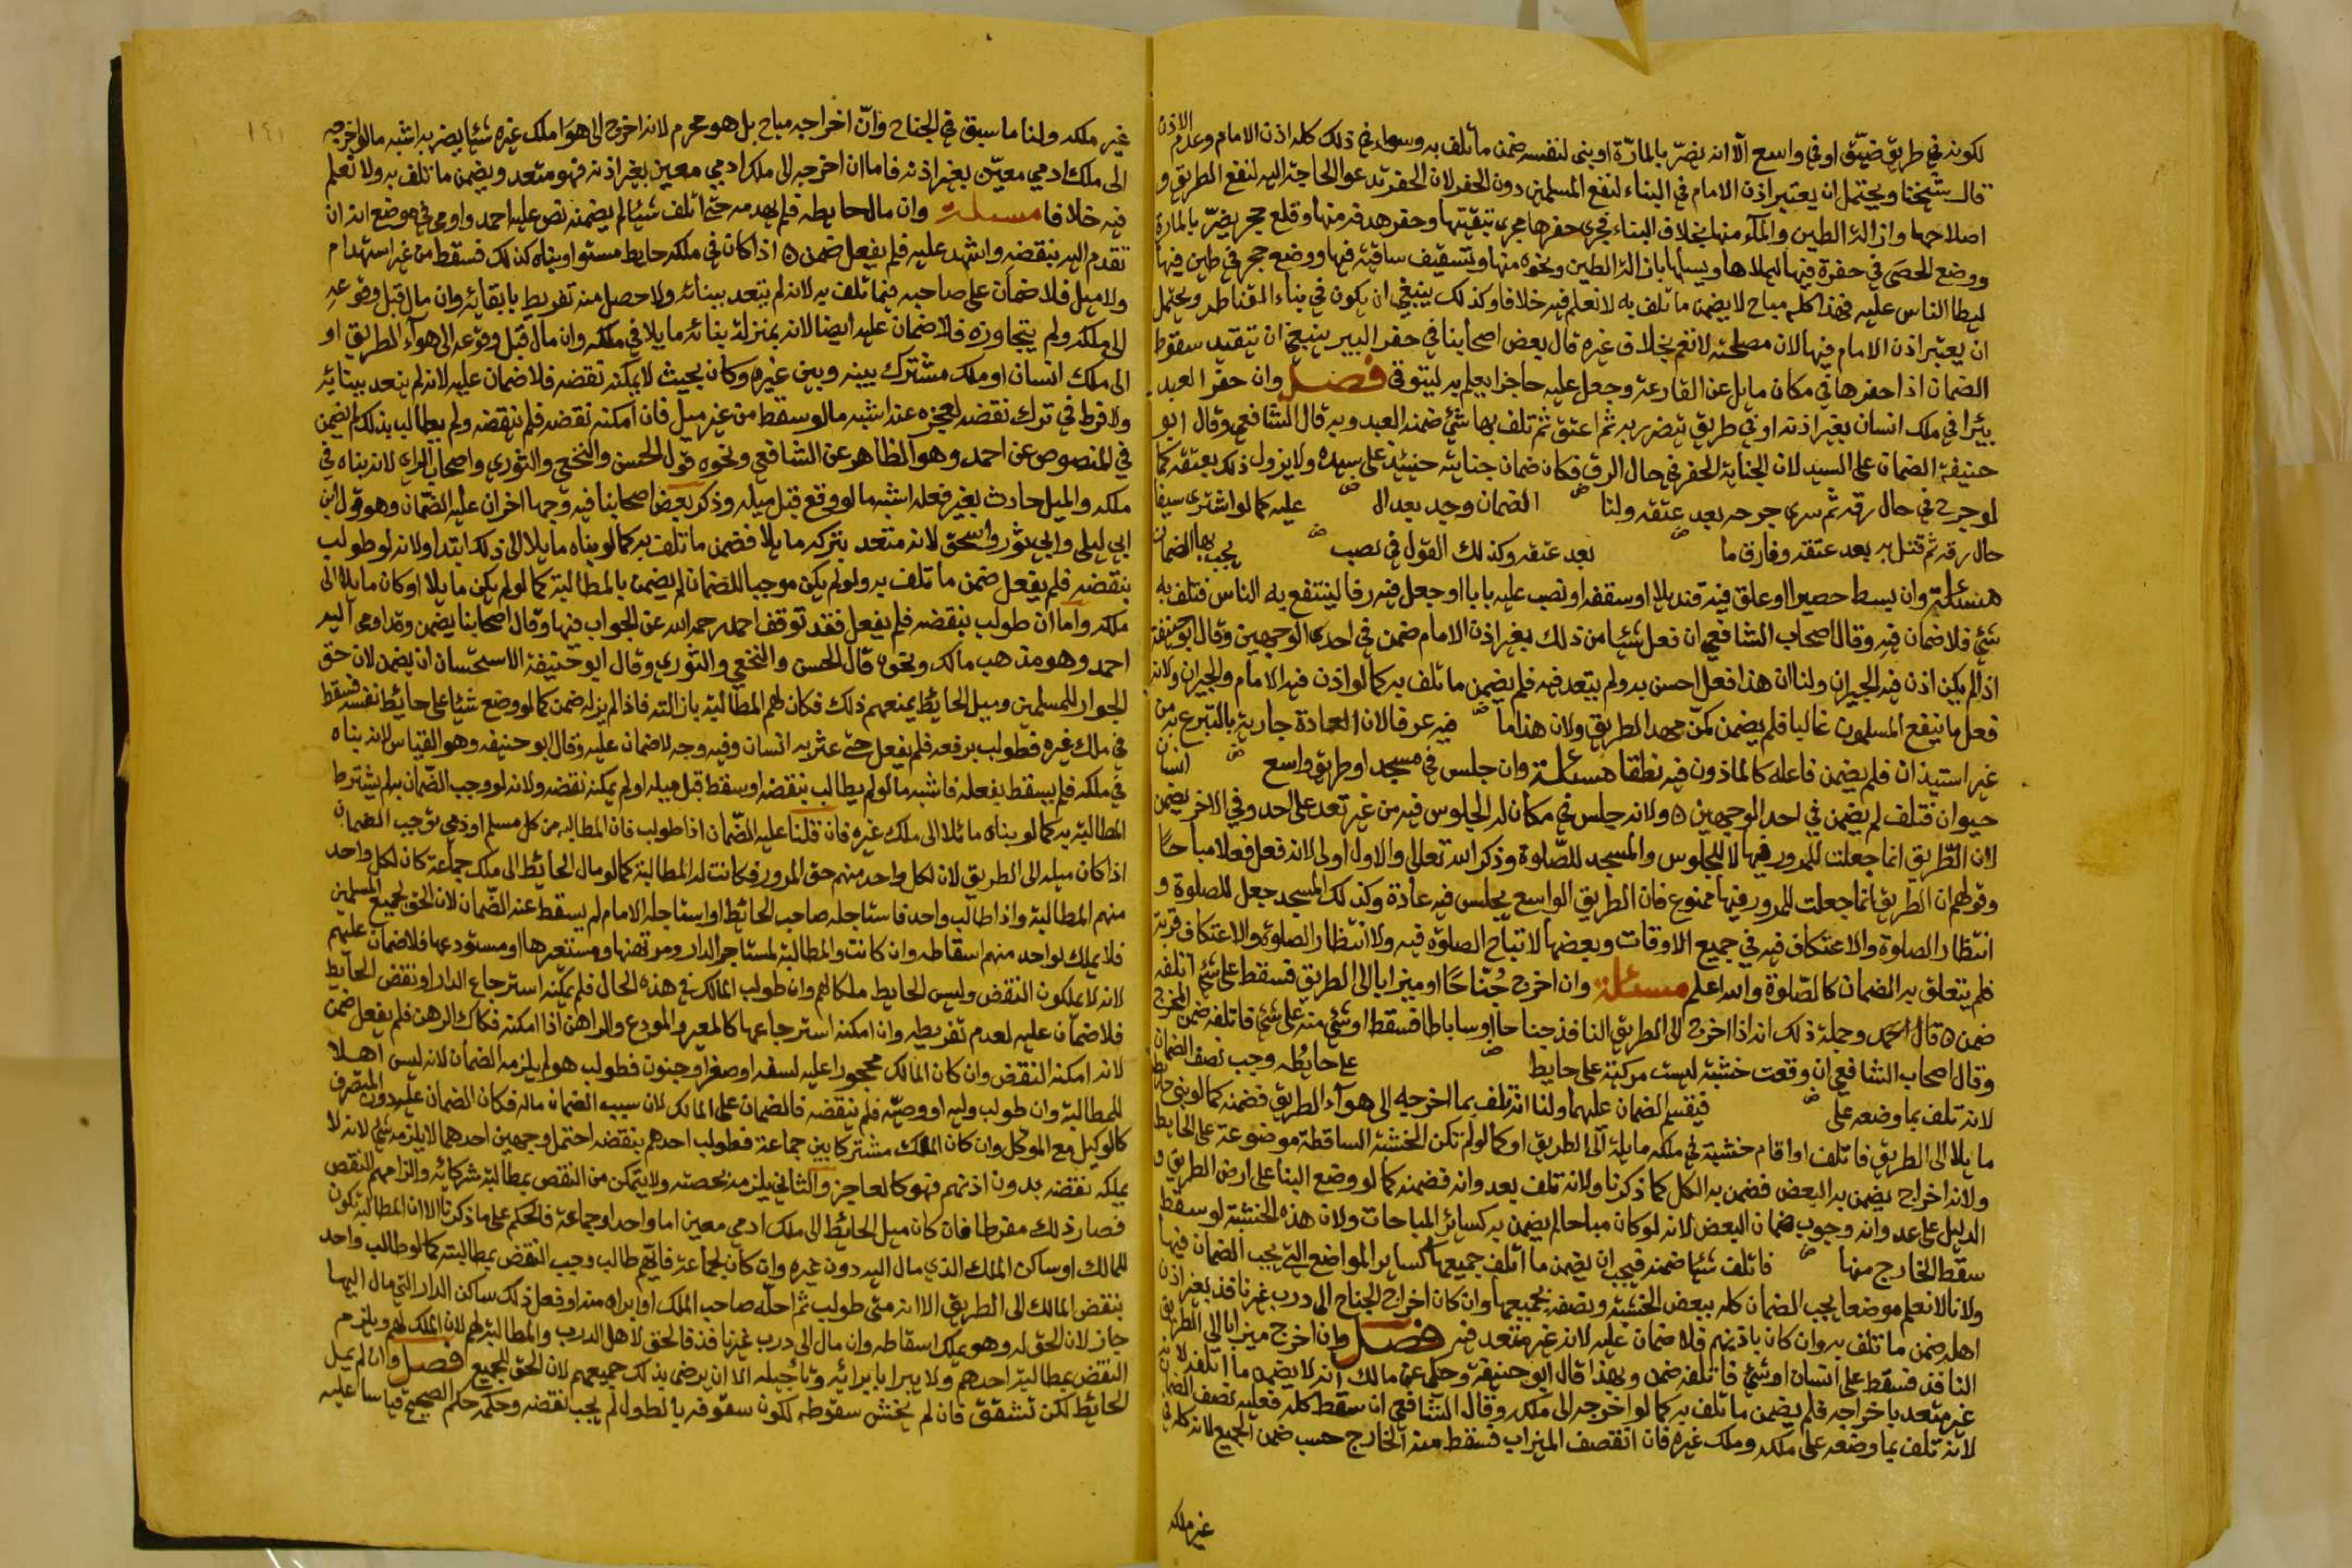 لكونه في طريق ضيق او في واسع الا انه يضر بالمارة او بنى لنفسه ضمن ما تلف به وسواء في ذلك كله اذن الامام وعدم الاذن
قال شيخنا ويحتمل ان يعتبر اذن الامام في البناء لنفع المسلمين دون الحفر لان الحفر تدعو الحاجة اليه لنفع الطريق و
اصلاحها وازالة الطين والمآء منها بخلاف البناء فجرى حفرها مجرى تنقيتها وحفر هدفه منها وقلع حجر يضر بالمارة
ووضع الحصى في حفرة فيها ليملاها ويسهلها بازالة الطين ونحوه منها وتسقيف ساقية فيها ووضع حجر في طين فيها
ليطا الناس عليه فهذا كله مباح لا يضمن ما تلف به لا نعلم فيه خلافا وكذلك ينبغي ان يكون في بناء القناطر ويحتمل
ان يعتبر اذن الامام فيها لان مصلحته لا تعم بخلاف غيره قال بعض اصحابنا في حفر البير ينبغي ان تتقيد سقوط
الضمان اذا حفرها في مكان مايل عن القارعة وجعل عليه حاجزا يعلم به ليتوقى فصل وان حفر العبد
بيرا في ملك انسان بغير اذنه او في طريق يتضرر به ثم اعتق ثم تلف بها شئ ضمنه العبد وبه قال الشافعي وقال ابو
حنيفة الضمان على السيد لان الجناية الحفر في حال الرق فكان ضمان جنايته حينئذ على سيده ولا يزول ذلك بعتقه كما
لو جرح في حال رقه ثم سرى جرحه بعد عتقه ولنا الضمان وجد بعد ال عليه كما لو اشترى سيفا
حال رقه ثم قتل به بعد عتقه وفارق ما بعد عتقه وكذلك القول في نصب يجب بها الضمان
مسئلة وان بسط حصيرا او علق فيه قنديلا او سقفه او نصب عليه بابا او جعل فيه رفا لينتفع به الناس فتلف به
شئ فلا ضمان فيه وقال اصحاب الشافعي ان فعل شيئا من ذلك بغير اذن الامام ضمن في احدى الوجهين وقال ابو حنيفة
اذا لم يكن اذن فيه الجيران ولنا ان هذا فعل احسن به ولم يتعد فيه فلم يضمن ما تلف به كما لو اذن فيه الامام والجيران ولانه
فعل ما ينفع المسلمون غالبا فلم يضمن كمن مهد الطريق ولان هذا ما فيه عرفا لان العادة جارية بالتبرع به من
غير استيذان فلم يضمن فاعله كالماذون فيه نطقا مسئلة وان جلس في مسجد او طريق واسع انسان
حيوان فتلف لم يضمن في احد الوجهين ولانه جلس في مكان له الجلوس فيه من غير تعد على احد وفي الاخر يضمن
لان الطريق انما جعلت للمرور فيها لا للجلوس والمسجد للصلوة وذكر الله تعالى والاول اولى لانه فعل فعلا مباحا
وقولهم ان الطريق انما جعلت للمرور فيها ممنوع فان الطريق الواسع يجلس فيه عادة وكذلك المسجد جعل للصلوة و
انتظار الصلوة والاعتكاف فيه في جميع الاوقات وبعضها لا تباح الصلوة فيه ولا انتظار الصلوة والاعتكاف قربة
فلم يتعلق به الضمان كالصلوة والله اعلم مسئلة وان اخرج جناحا او ميزابا الى الطريق فسقط على شئ اتلفه
ضمن قال احمد وجملة ذلك انه اذا اخرج الى الطريق النافذ جناحا او ساباطا فسقط او شئ منه على شئ فاتلفه ضمن المخرج
وقال اصحاب الشافعي ان وقعت خشبة ليست مركبة على حايط على حايطه وجب نصف الضمان
لانه تلف بما وضعه على فيقسم الضمان عليهما ولنا انه تلف بما اخرجه الى هوآء الطريق فضمنه كما لو بنى حايطا
مايلا الى الطريق فاتلف او اقام خشبة في ملكه مايلة الى الطريق او كما لو لم تكن الخشبة الساقطة موضوعة على الحايط
ولانه اخراج يضمن به البعض فضمن به الكل كما ذكرنا ولانه تلف بعدوانه فضمنه كما لو وضع البنا على ارض الطريق و
الدليل على عدوانه وجوب ضمان البعض لانه لو كان مباحا لم يضمن به كسائر المباحات ولان هذه الخشبة لو سقط
سقط الخارج منها فاتلف شيئا ضمنه فيجب ان يضمن ما اتلف جميعها كساير المواضع التي يجب الضمان فيها
ولانا لا نعلم موضعا يجب الضمان كله ببعض الخشبة ونصفه بجميعها وان كان اخراج الجناح الى درب غير نافذ بغير اذن
اهله ضمن ما تلف به وان كان باذنهم فلا ضمان عليه لانه غير متعد فيه فصل وان اخرج ميزابا الى الطريق
النافذ فسقط على انسان او شئ فاتلفه ضمن وبهذا قال ابو حنيفة وحكي عن مالك انه لا يضمن ما اتلفه لانه
غير متعد باخراجه فلم يضمن ما تلف به كما لو اخرجه الى ملكه وقال الشافعي ان سقط كله فعليه نصف الضمان
لانه تلف بما وضعه على ملكه وملك غيره فان انقصف الميزاب فسقط منه الخارج حسب ضمن الجميع لانه كله في
غير ملكه
١٤١
غير ملكه ولنا ما سبق في الجناح وان اخراجه مباح بل هو محرم لانه اخرج الى هوا ملك غيره شيئا يضر به اشبه ما لو اخرجه
الى ملك ادمي معين بغير اذنه فاما ان اخرجه الى ملك ادمي معين بغير اذنه فهو متعد ويضمن ما تلف به ولا نعلم
فيه خلافا مسئلة وان مال حايطه فلم يهدمه حتى اتلف شيئا لم يضمنه نص عليه احمد واومى في موضع انه ان
تقدم اليه بنقضه واشهد عليه فلم يفعل ضمن اذا كان في ملكه حايط مستو او بناه كذلك فسقط من غير استهدام
ولا ميل فلا ضمان على صاحبه فيما تلف به لانه لم يتعد ببنائه ولا حصل منه تفريط بابقائه وان مال قبل وقوعه
الى ملكه ولم يتجاوزه فلا ضمان عليه ايضا لانه بمنزلة بنائه مايلا في ملكه وان مال قبل وقوعه الى هوآء الطريق او
الى ملك انسان او ملك مشترك بينه وبين غيره وكان بحيث لا يمكنه نقضه فلا ضمان عليه لانه لم يتعد ببنائه
ولا فرط في ترك نقضه لعجزه عنه اشبه ما لو سقط من غير ميل فان امكنه نقضه فلم ينقضه ولم يطالب بذلك لم يضمن
في المنصوص عن احمد وهو الظاهر عن الشافعي ونحوه قول الحسن والنخعي والثوري واصحاب الراي لانه بناه في
ملكه والميل حادث بغير فعله اشبه ما لو وقع قبل ميله وذكر بعض اصحابنا فيه وجها اخر ان عليه الضمان وهو قول ابن
ابي ليلى وابي ثور واسحق لانه متعد بتركه مايلا فضمن ما تلف به كما لو بناه مايلا الى ذلك ابتدا ولانه لو طولب
بنقضه فلم يفعل ضمن ما تلف به ولو لم يكن موجبا للضمان لم يضمن بالمطالبة كما لو لم يكن مايلا او كان مايلا الى
ملكه واما ان طولب بنقضه فلم يفعل فقد توقف احمد رحمه الله عن الجواب فيها وقال اصحابنا يضمن وقد اومى اليه
احمد وهو مذهب مالك ونحوه قال الحسن والنخعي والثوري وقال ابو حنيفة الاستحسان ان يضمن لان حق
الجوار للمسلمين وميل الحايط يمنعهم ذلك فكان لهم المطالبة بازالته فاذا لم يزله ضمن كما لو وضع شيئا على حايط نفسه فسقط
في ملك غيره فطولب برفعه فلم يفعل حتى عثر به انسان وفيه وجه لا ضمان عليه وقال ابو حنيفة وهو القياس لانه بناه
في ملكه فلم يسقط بفعله فاشبه ما لو لم يطالب بنقضه او سقط قبل ميله او لم يمكنه نقضه ولانه لو وجب الضمان به لم يشترط
المطالبة به كما لو بناه مائلا الى ملك غيره فان قلنا عليه الضمان اذا طولب فان المطالبة من كل مسلم او ذمي توجب الضمان
اذا كان ميله الى الطريق لان لكل واحد منهم حق المرور فكانت له المطالبة كما لو مال الحائط الى ملك جماعة كان لكل واحد
منهم المطالبة واذا طالب واحد فاستاجله صاحب الحائط او استاجله الامام لم يسقط عنه الضمان لان الحق لجميع المسلمين
فلا يملك لواحد منهم اسقاطه وان كانت والمطالبة لمستاجر الدار ومرتهنها ومستعيرها او مستودعها فلا ضمان عليهم
لانه لا يملكون النقض وليس الحايط ملكا لهم وان طولب المالك في هذه الحال فلم يمكنه استرجاع الدار او نقض الحايط
فلا ضمان عليه لعدم تفريطه وان امكنه استرجاعها كالمعير والمودع والراهن اذا امكنه فكاك الرهن فلم يفعل ضمن
لانه امكنه النقض وان كان المالك محجورا عليه لسفه او صغر او جنون فطولب هو لم يلزمه الضمان لانه ليس اهلا
للمطالبة وان طولب وليه او وصيه فلم ينقضه فالضمان على المالك لان سبب الضمان ماله فكان الضمان عليه دون المتصرف
كالوكيل مع الموكل وان كان الملك مشتركا بين جماعة فطولب احدهم بنقضه احتمل وجهين احدهما لا يلزمه شئ لانه لا
يملكه نقضه بدون اذنهم فهو كالعاجز والثاني يلزمه بحصته ولا يتمكن من النقض بمطالبة شركائه والزامهم النقص
فصار ذلك مفرطا فان كان ميل الحائط الى ملك ادمي معين اما واحدا وجماعة فالحكم على ما ذكرنا الا ان المطالبة تكون
للمالك او ساكن الملك الذي مال اليه دون غيره وان كان لجماعة فايهم طالب وجب النقض بمطالبته كما لو طالب واحد
بنقض المالك الى الطريق الا انه متى طولب ثم احله صاحب الملك او ابراه منه او فعل ذلك ساكن الدار التي مال اليها
جاز لان الحق له وهو يملك اسقاطه وان مال الى درب غير نافذ فالحق لاهل الدرب والمطالبة لهم لان الملك لهم ويلزم
النقض بمطالبة احدهم ولا يبرا بابرائه وتأجيله الا ان يرضى بذلك جميعهم لان الحق للجميع فصل وان لم يميل
الحائط لكن تشقق فان لم يخش سقوطه لكون سقوفه بالطول لم يجب نقضه وحكمه حكم الصحيح قياسا عليه